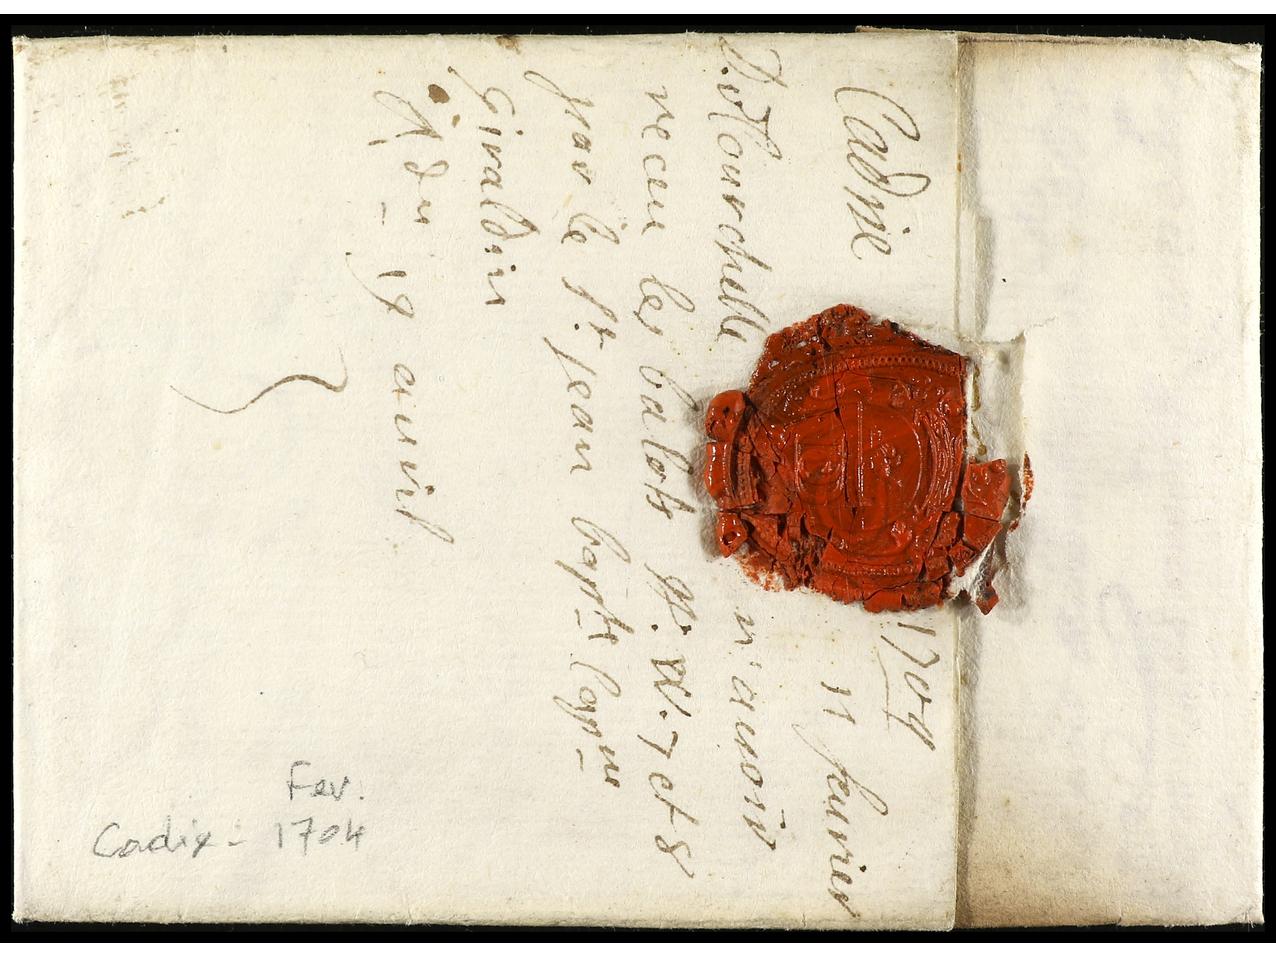 Cadie 1704
11 feurier
Dolourchelle n'auoir
receu les balots N. W. 7 et 8
par le Sr. jean bapte Capne
Giraldin
Rdu 17 auril
Fev.
Cadix - 1704